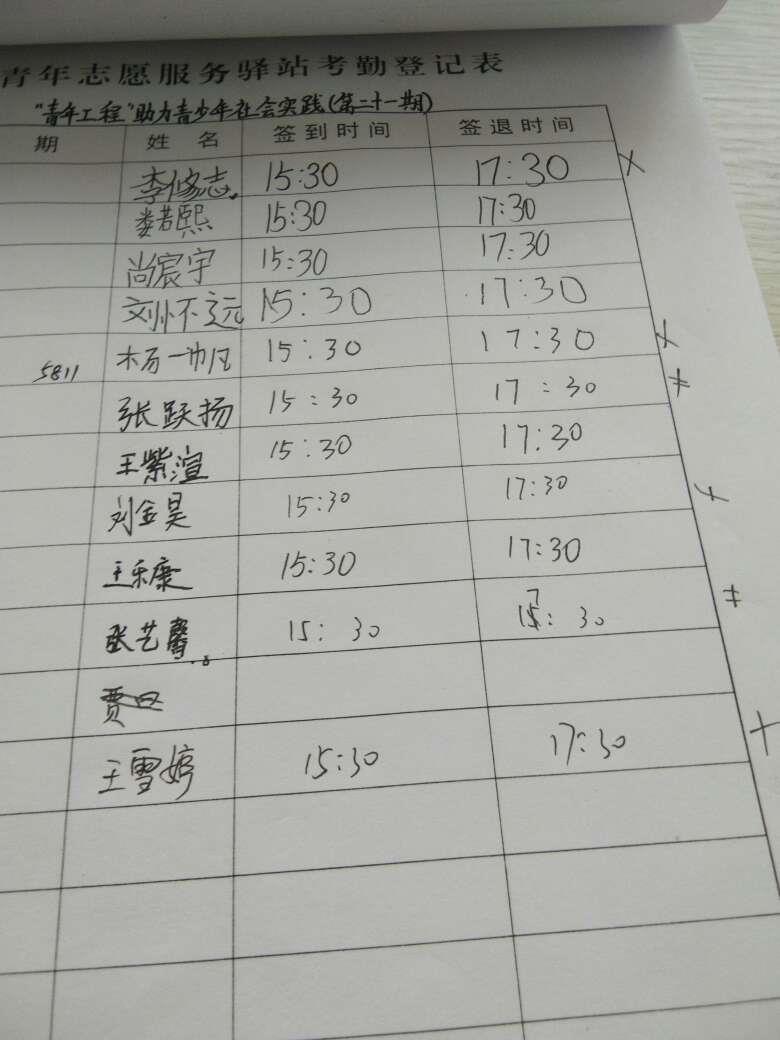 青年志愿服务驿站考勤登记表
"青年工程"助力青少年社会实践(第二十一期)
期 姓名 签到时间 签退时间
李修志 15:30 17:30
娄若熙 15:30 17:30
尚宸宇 15:30 17:30
刘怀元 15:30 17:30
5811 杨一帆 15:30 17:30
张跃扬 15:30 17:30
王紫渲 15:30 17:30
刘金昊 15:30 17:30
王乐康 15:30 17:30
张艺馨 15:30 17:30
王雪婷 15:30 17:30